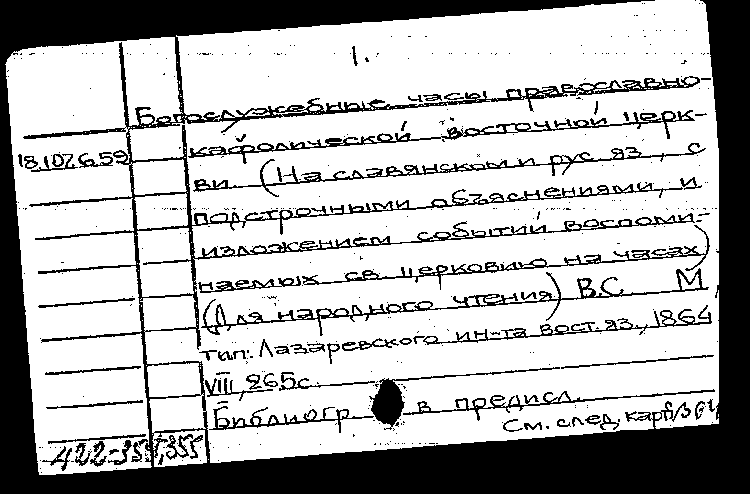 1.
Богослужебные часы православно-
кафолической восточной церк-
18.102.6.59
ви. (На славянском и рус. яз., с
подстрочными объяснениями, и
изложением событий воспоми-
наемых св. церковию на часах)
(Для народного чтения) В.С. М,
тип. Лазаревского ин-та вост. яз., 1864
VIII, 265 с.
Библиогр. в предисл.
См. след. карт